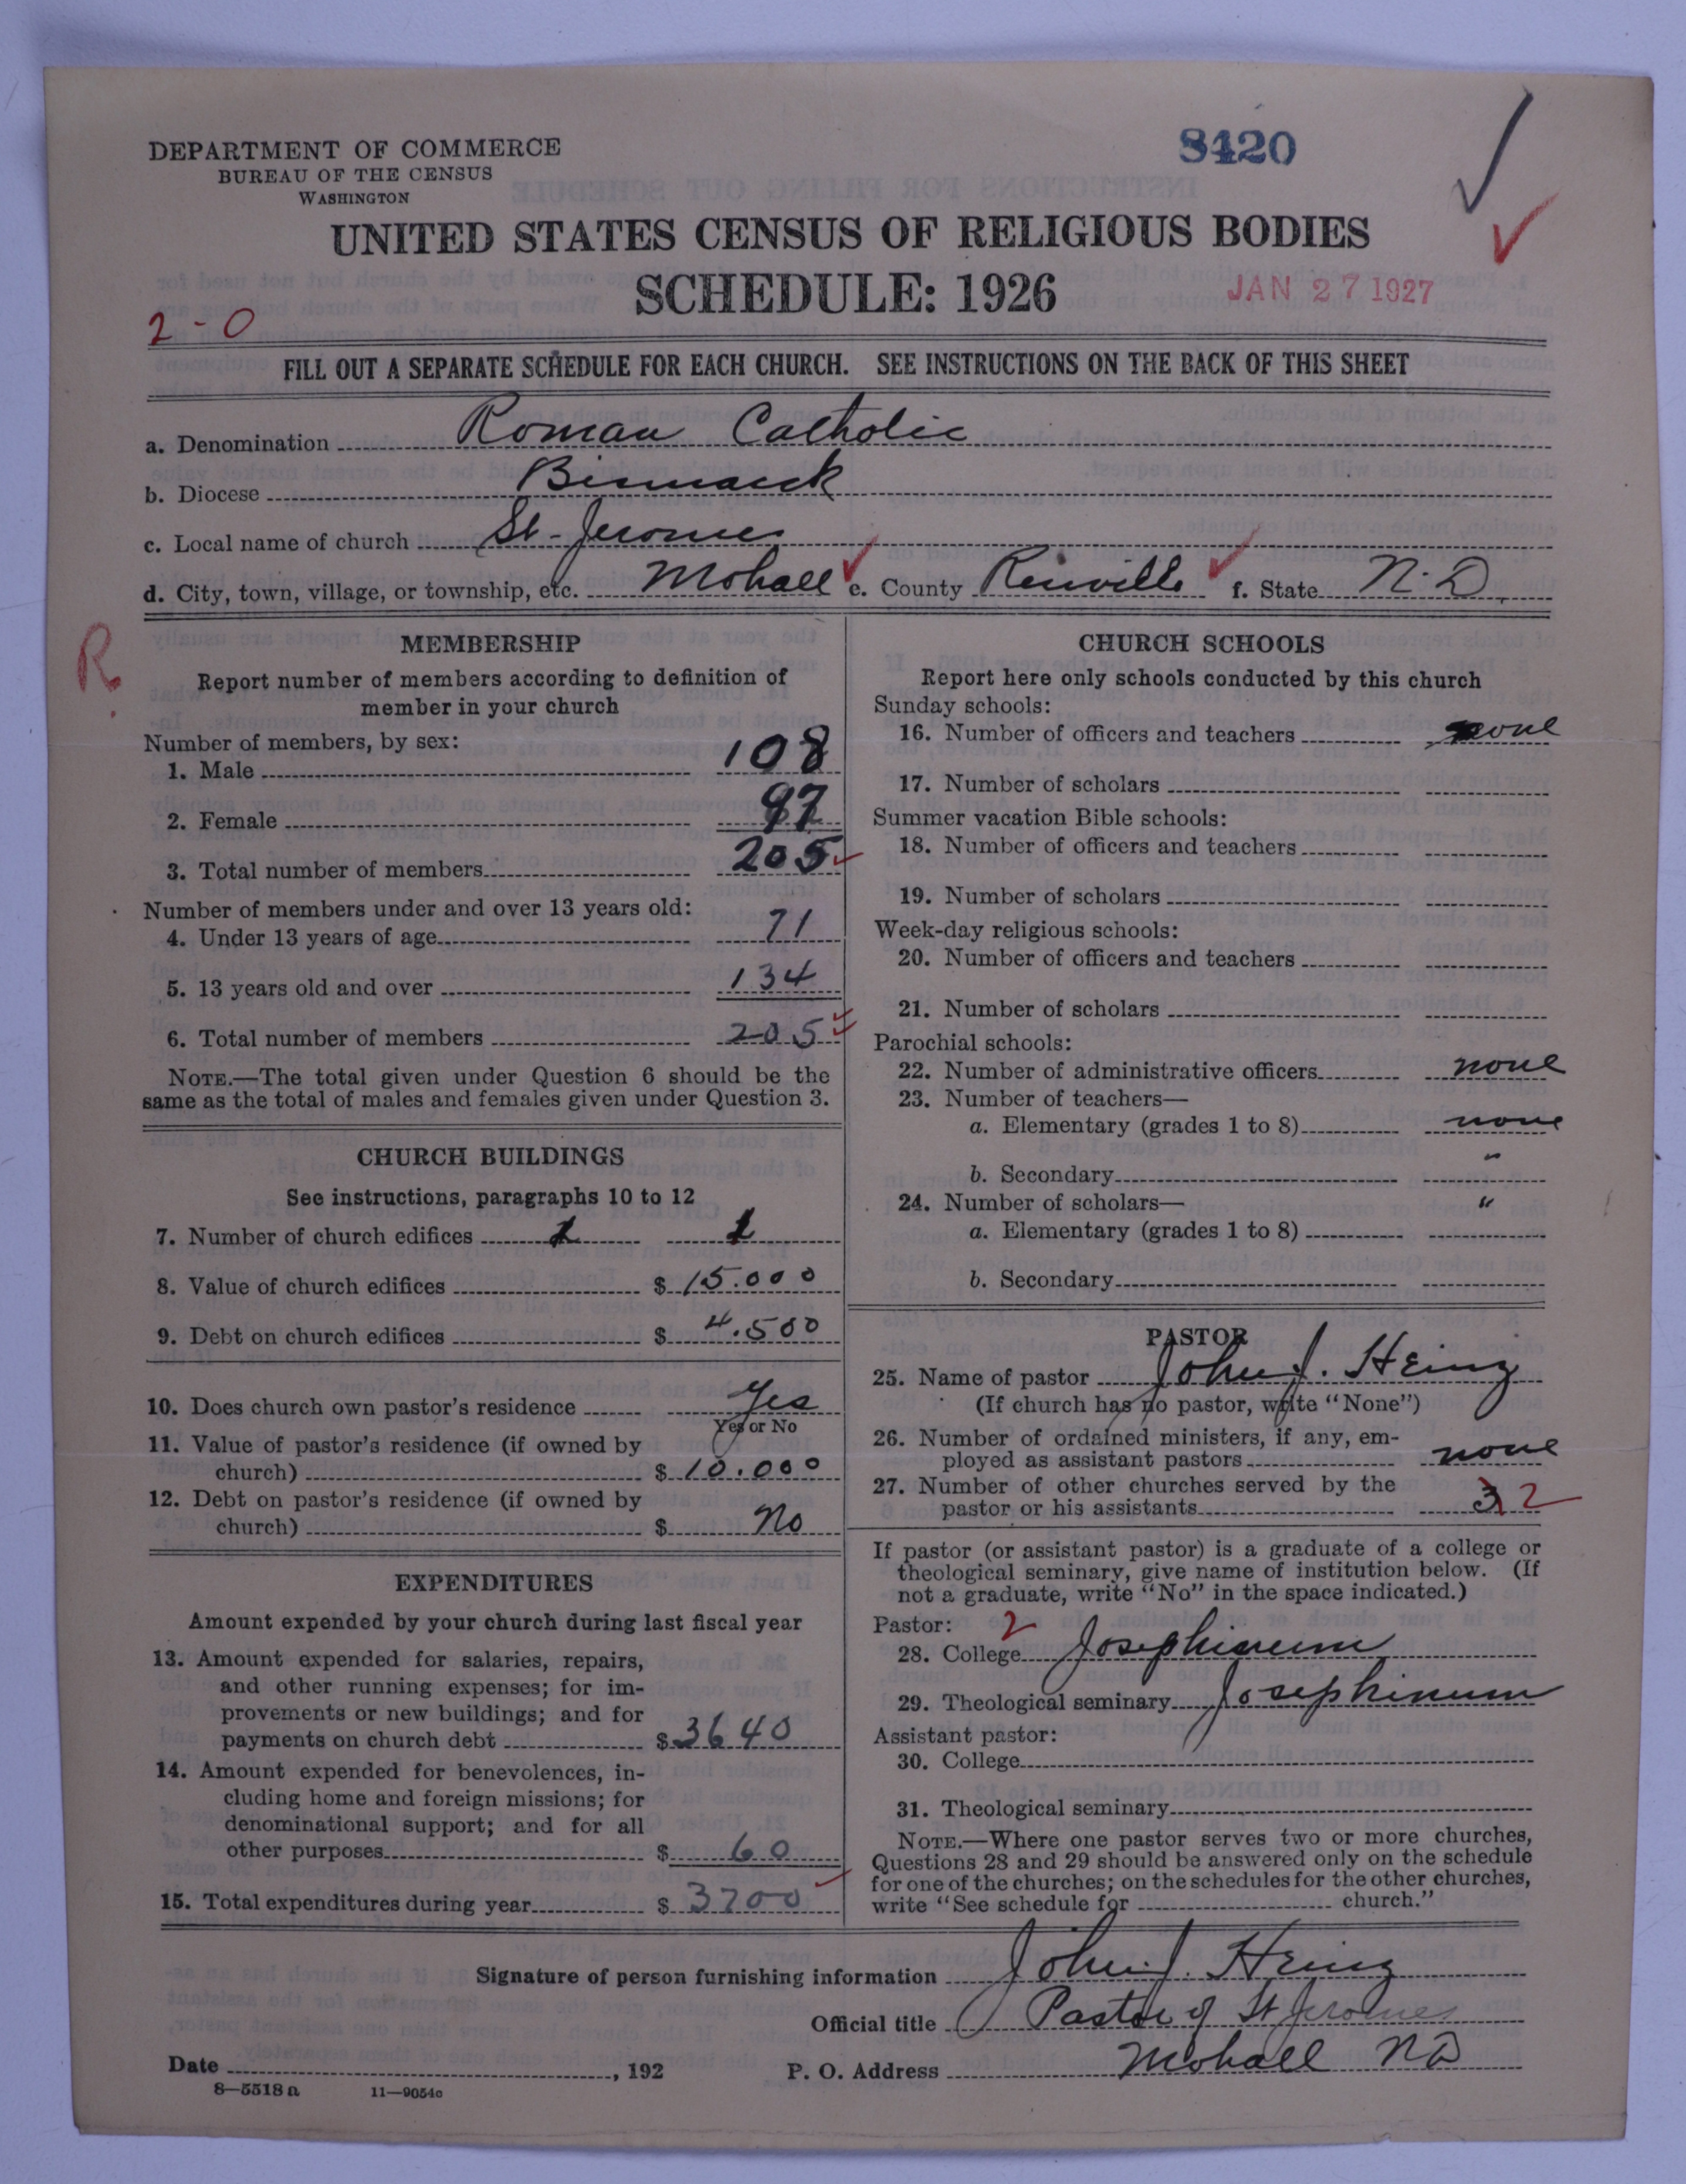 DEPARTMENT OF COMMERCE
BUREAU OF THE CENSUS
WASHINGTON
8420
UNITED STATES CENSUS OF RELIGIOUS BODIES
SCHEDULE: 1926
JAN 27 1927
2-0
FILL OUT A SEPARATE SCHEDULE FOR EACH CHURCH. SEE INSTRUCTIONS ON THE BACK OF THIS SHEET
a. Denomination Roman Catholic
b. Diocese Bismarck
c. Local name of church St-Jeromes
d. City, town, village, or township, etc. Mohall e. County Renville f. State N.D.
R
MEMBERSHIP
Report number of members according to definition of
member in your church
Number of members, by sex:
1. Male 108
2. Female 97
3. Total number of members 205
Number of members under and over 13 years old:
4. Under 13 years of age 71
5. 13 years old and over 134
6. Total number of members 205
NOTE.—The total given under Question 6 should be the
same as the total of males and females given under Question 3.
CHURCH BUILDINGS
See instructions, paragraphs 10 to 12
7. Number of church edifices 1 1
8. Value of church edifices $ 15.000
9. Debt on church edifices $ 4.500
10. Does church own pastor's residence Yes
Yes or No
11. Value of pastor's residence (if owned by
church) $ 10.000
12. Debt on pastor's residence (if owned by
church) $ No
EXPENDITURES
Amount expended by your church during last fiscal year
13. Amount expended for salaries, repairs,
and other running expenses; for im-
provements or new buildings; and for
payments on church debt $ 3640
14. Amount expended for benevolences, in-
cluding home and foreign missions; for
denominational support; and for all
other purposes $ 60
15. Total expenditures during year $ 3700
CHURCH SCHOOLS
Report here only schools conducted by this church
Sunday schools:
16. Number of officers and teachers none
17. Number of scholars
Summer vacation Bible schools:
18. Number of officers and teachers
19. Number of scholars
Week-day religious schools:
20. Number of officers and teachers
21. Number of scholars
Parochial schools:
22. Number of administrative officers none
23. Number of teachers—
a. Elementary (grades 1 to 8) none
b. Secondary "
24. Number of scholars— "
a. Elementary (grades 1 to 8)
b. Secondary
PASTOR
25. Name of pastor John J. Heinz
(If church has no pastor, write "None")
26. Number of ordained ministers, if any, em-
ployed as assistant pastors none
27. Number of other churches served by the
pastor or his assistants 3 2
If pastor (or assistant pastor) is a graduate of a college or
theological seminary, give name of institution below. (If
not a graduate, write "No" in the space indicated.)
Pastor: 2
28. College Josephinum
29. Theological seminary Josephinum
Assistant pastor:
30. College
31. Theological seminary
NOTE.—Where one pastor serves two or more churches,
Questions 28 and 29 should be answered only on the schedule
for one of the churches; on the schedules for the other churches,
write "See schedule for church."
Signature of person furnishing information John J. Heinz
Official title Pastor of St Jeromes
Date , 192 P. O. Address Mohall ND
8—5518 a 11—9054c